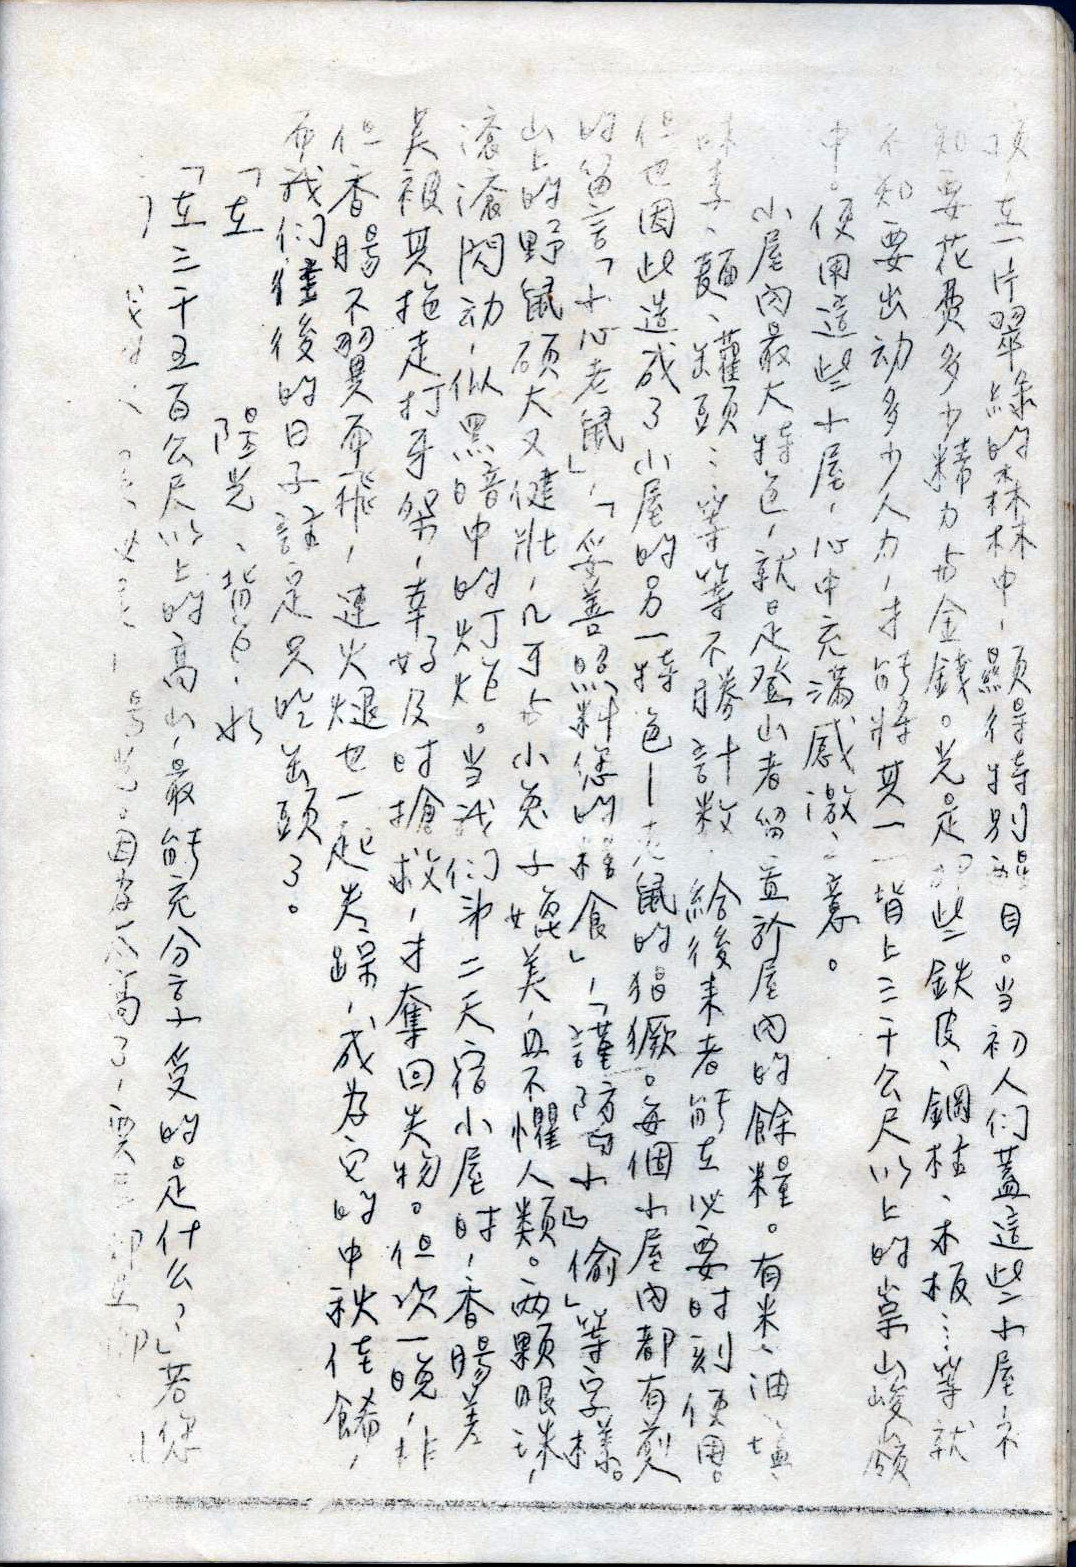 頂，在一片翠綠的森林中，顯得特別醒目。当初人们蓋這些小屋，不
知要花費多少精力与金錢。光是那些鉄皮、鋼柱、木板…等就
不知要出动多少人力，才能將其一一揹上三千公尺以上的崇山峻嶺
中。使用這些小屋，心中充滿感激之意。
小屋內最大特色，就是登山者留置於屋內的餘糧。有米、油、塩、
味素、麵、罐頭…等等不勝計數，給後来者能在必要时刻使用。
但也因此造成了小屋的另一特色—老鼠的猖獗。每個小屋內都有前人
的留言「小心老鼠」，「妥善照料您的糧食」，「謹防小偷」等字樣。
山上的野鼠碩大又健壯，几可与小兔子媲美，且不懼人類。兩顆眼珠，
滾滾閃动，似黑暗中的灯炬。当我们第二天宿小屋时，香腸差
点被其拖走打牙祭，幸好及时搶救，才奪回失物。但次一晚，
但香腸不翼而飛，連火腿也一起失踪，成为它的中秋佳餚，
而我们往後的日子註定只吃缶頭了。
「在 陽光、揹包、水
「在三千五百公尺以上的高山，最能充分享受的是什么？」若您